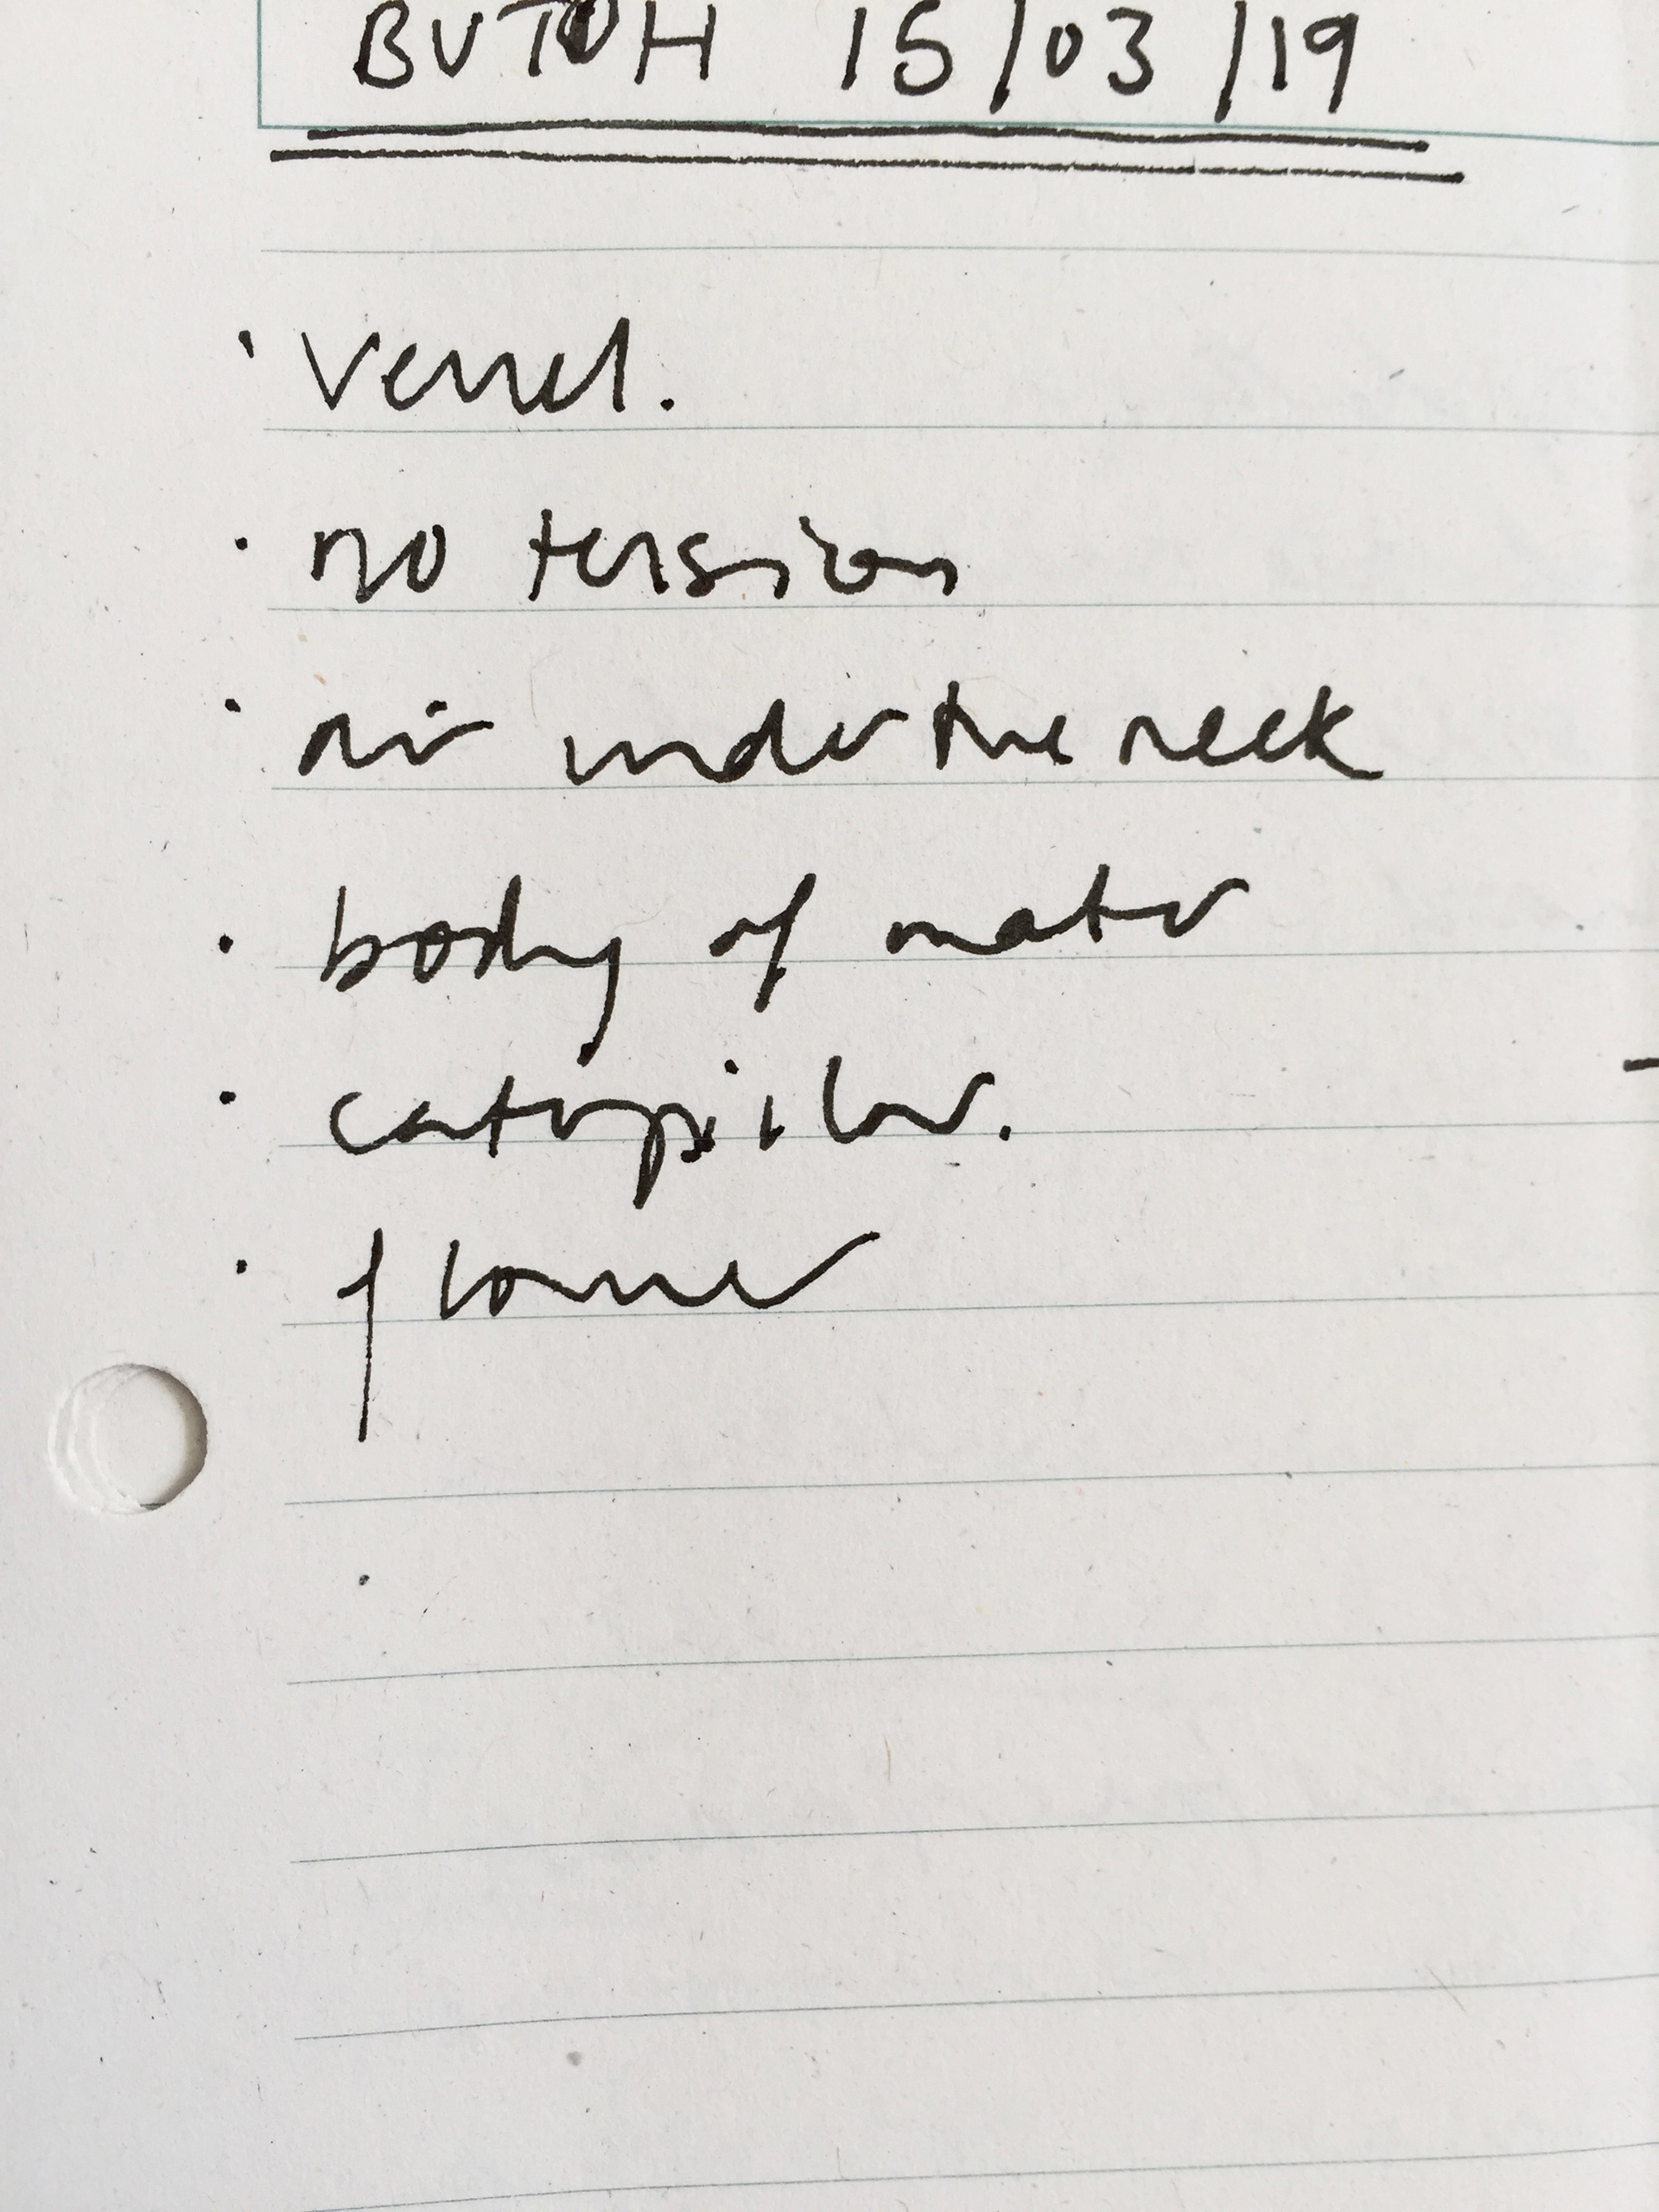 BUTOH 15/03/19
· Vessel.
· no tension
· air under the neck
· body of water
· caterpilar.
· flower